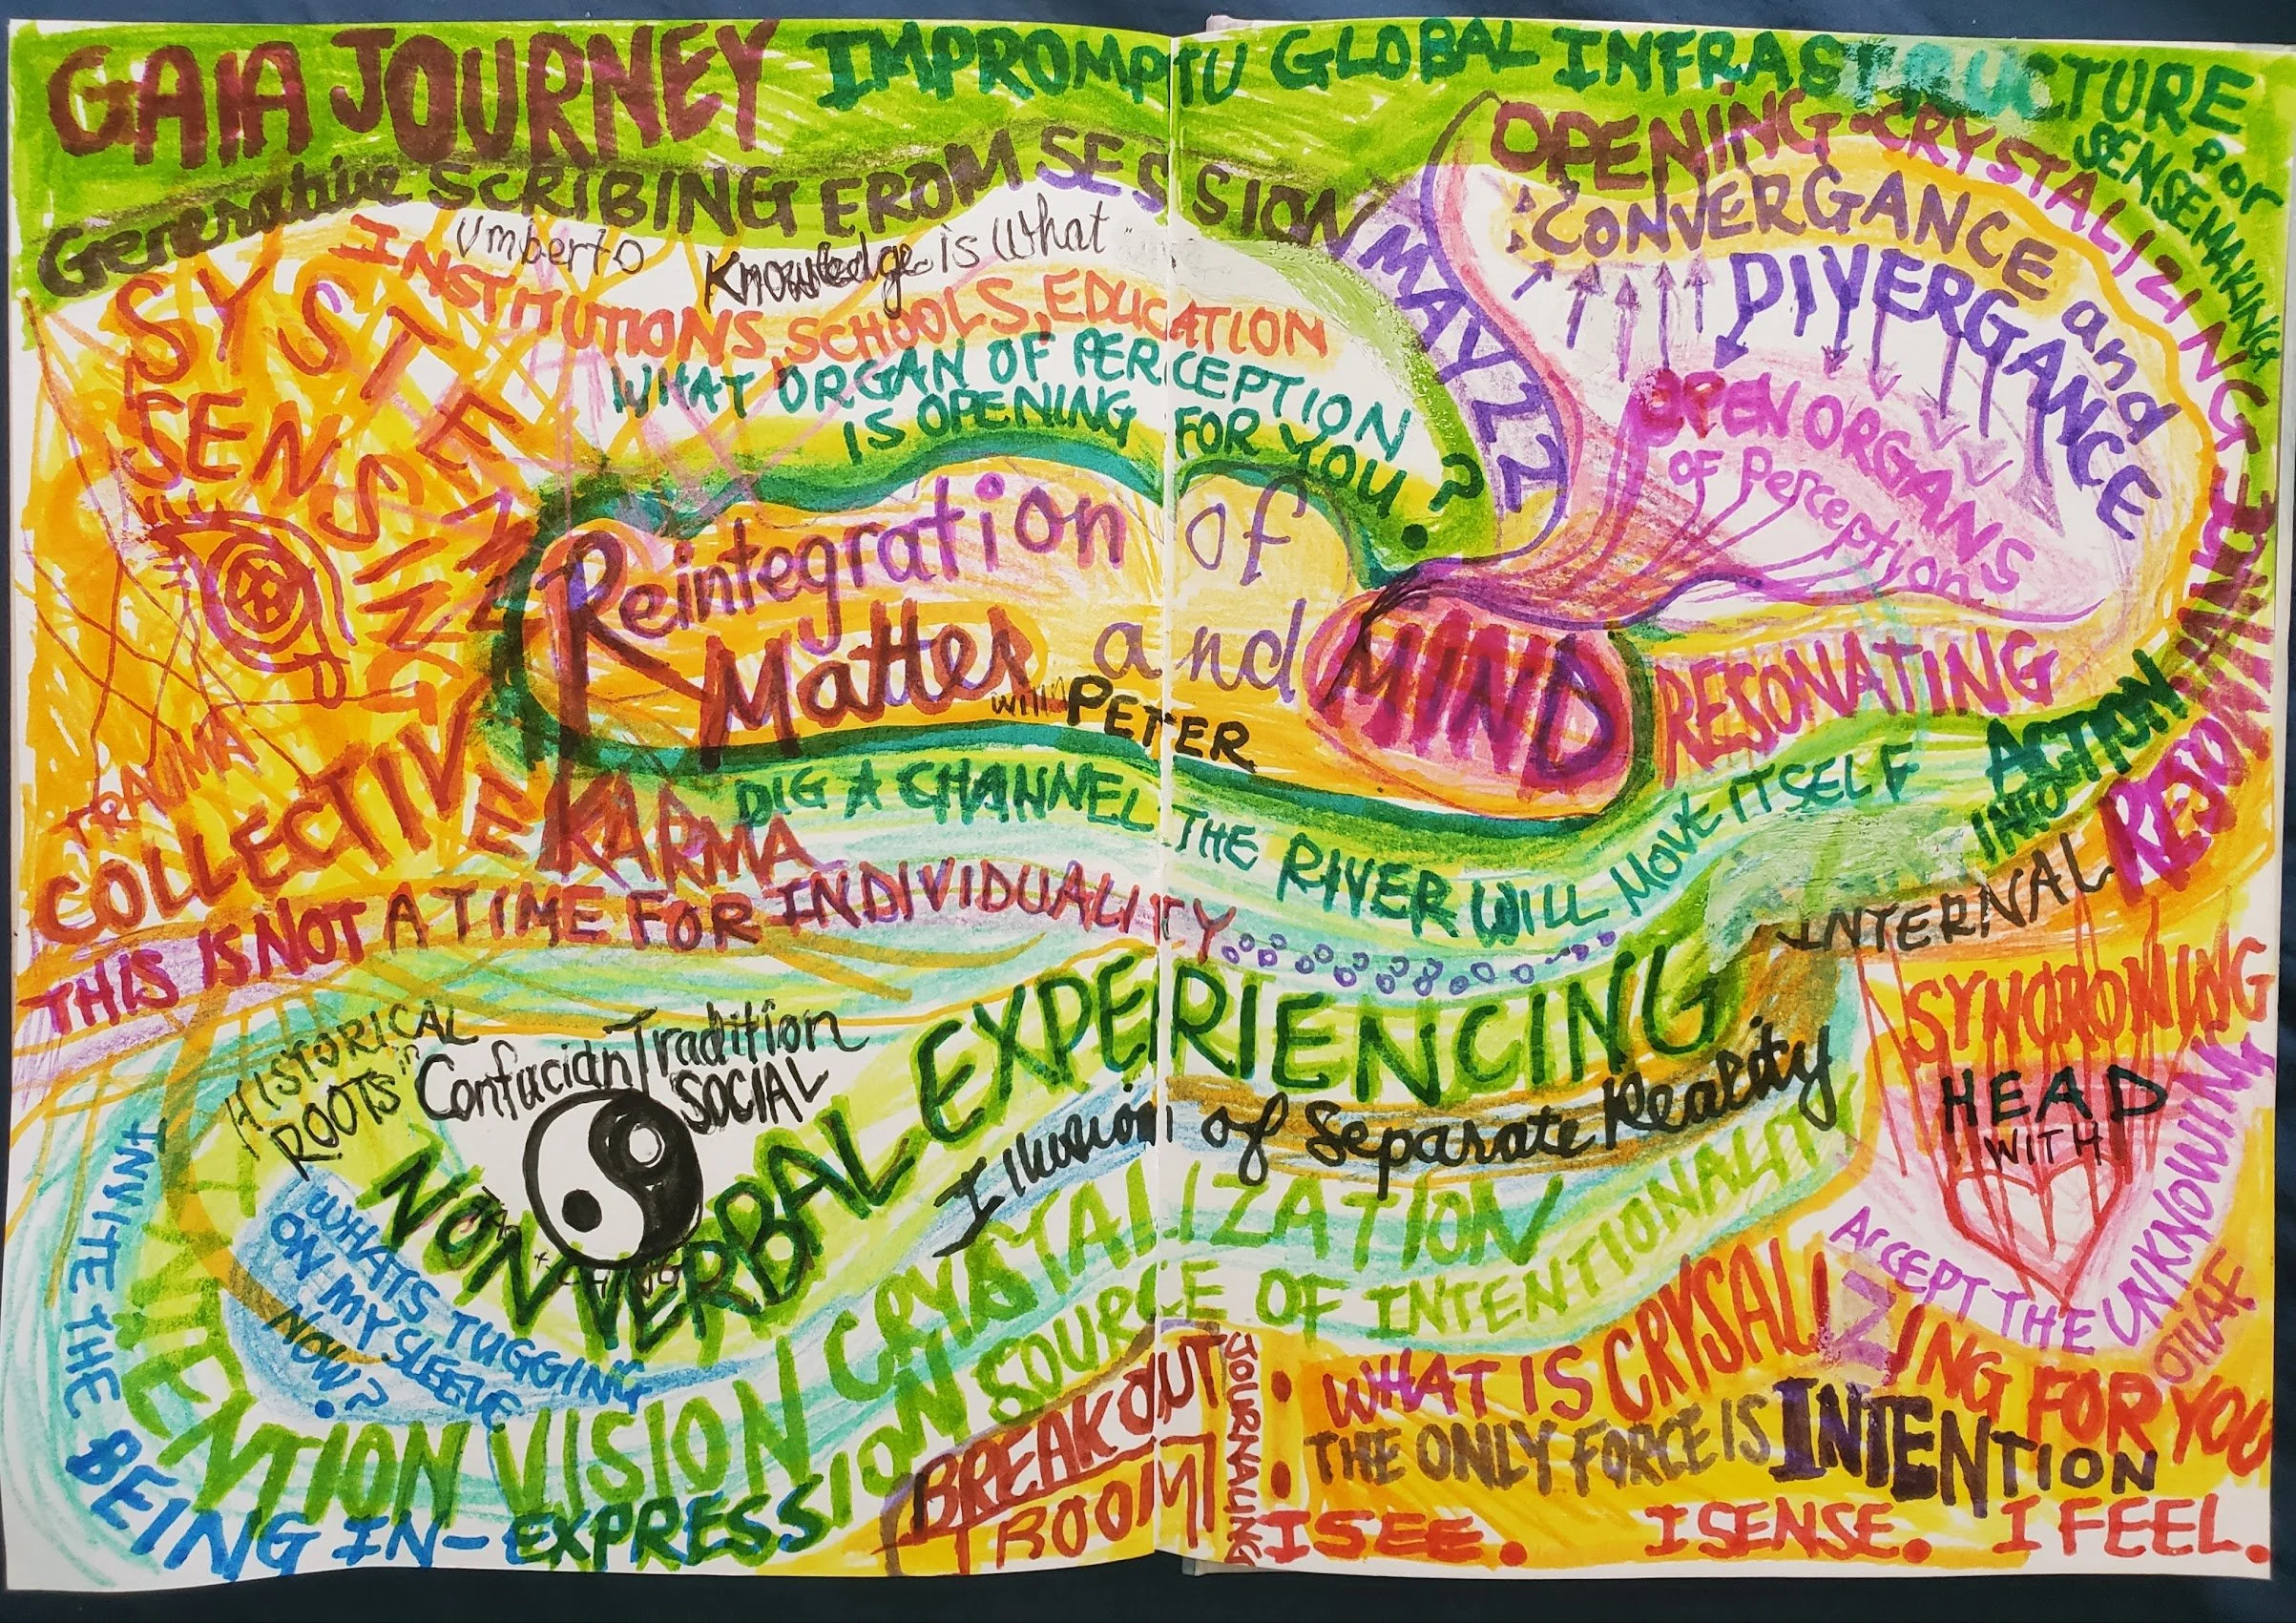 GAIA JOURNEY IMPROMPTU GLOBAL INFRASTRUCTURE
for SENSEMAKING
Generative SCRIBING FROM SESSION MAY 22
OPENING - CRYSTALIZING
CONVERGANCE and
DIVERGANCE
OPEN ORGANS
of Perception
Umberto Knowledge is What
INSTITUTIONS, SCHOOLS, EDUCATION
WHAT ORGAN OF PERCEPTION
IS OPENING FOR YOU?
SYSTEM
SENSING
Reintegration of
Matter and MIND
with PETER
RESONATING
TRAUMA
COLLECTIVE KARMA
DIG A CHANNEL THE RIVER WILL MOVE ITSELF
INTO ACTION
THIS IS NOT A TIME FOR INDIVIDUALITY
INTERNAL
SYNCRONIZING
HEAD
WITH
ACCEPT THE UNKNOWING
HISTORICAL
ROOTS in
Confucian Tradition
SOCIAL
NONVERBAL EXPERIENCING
Illusion of Separate Reality
WHATS TUGGING
ON MY SLEEVE
NOW?
INTENTION VISION CRYSTALIZATION
EXPRESSION SOURCE OF INTENTIONALITY
INVITE THE BEING IN-
BREAKOUT
ROOM
JOURNALING
: WHAT IS CRYSALIZING FOR YOU
THE ONLY FORCE IS INTENTION
I SEE. I SENSE. I FEEL.